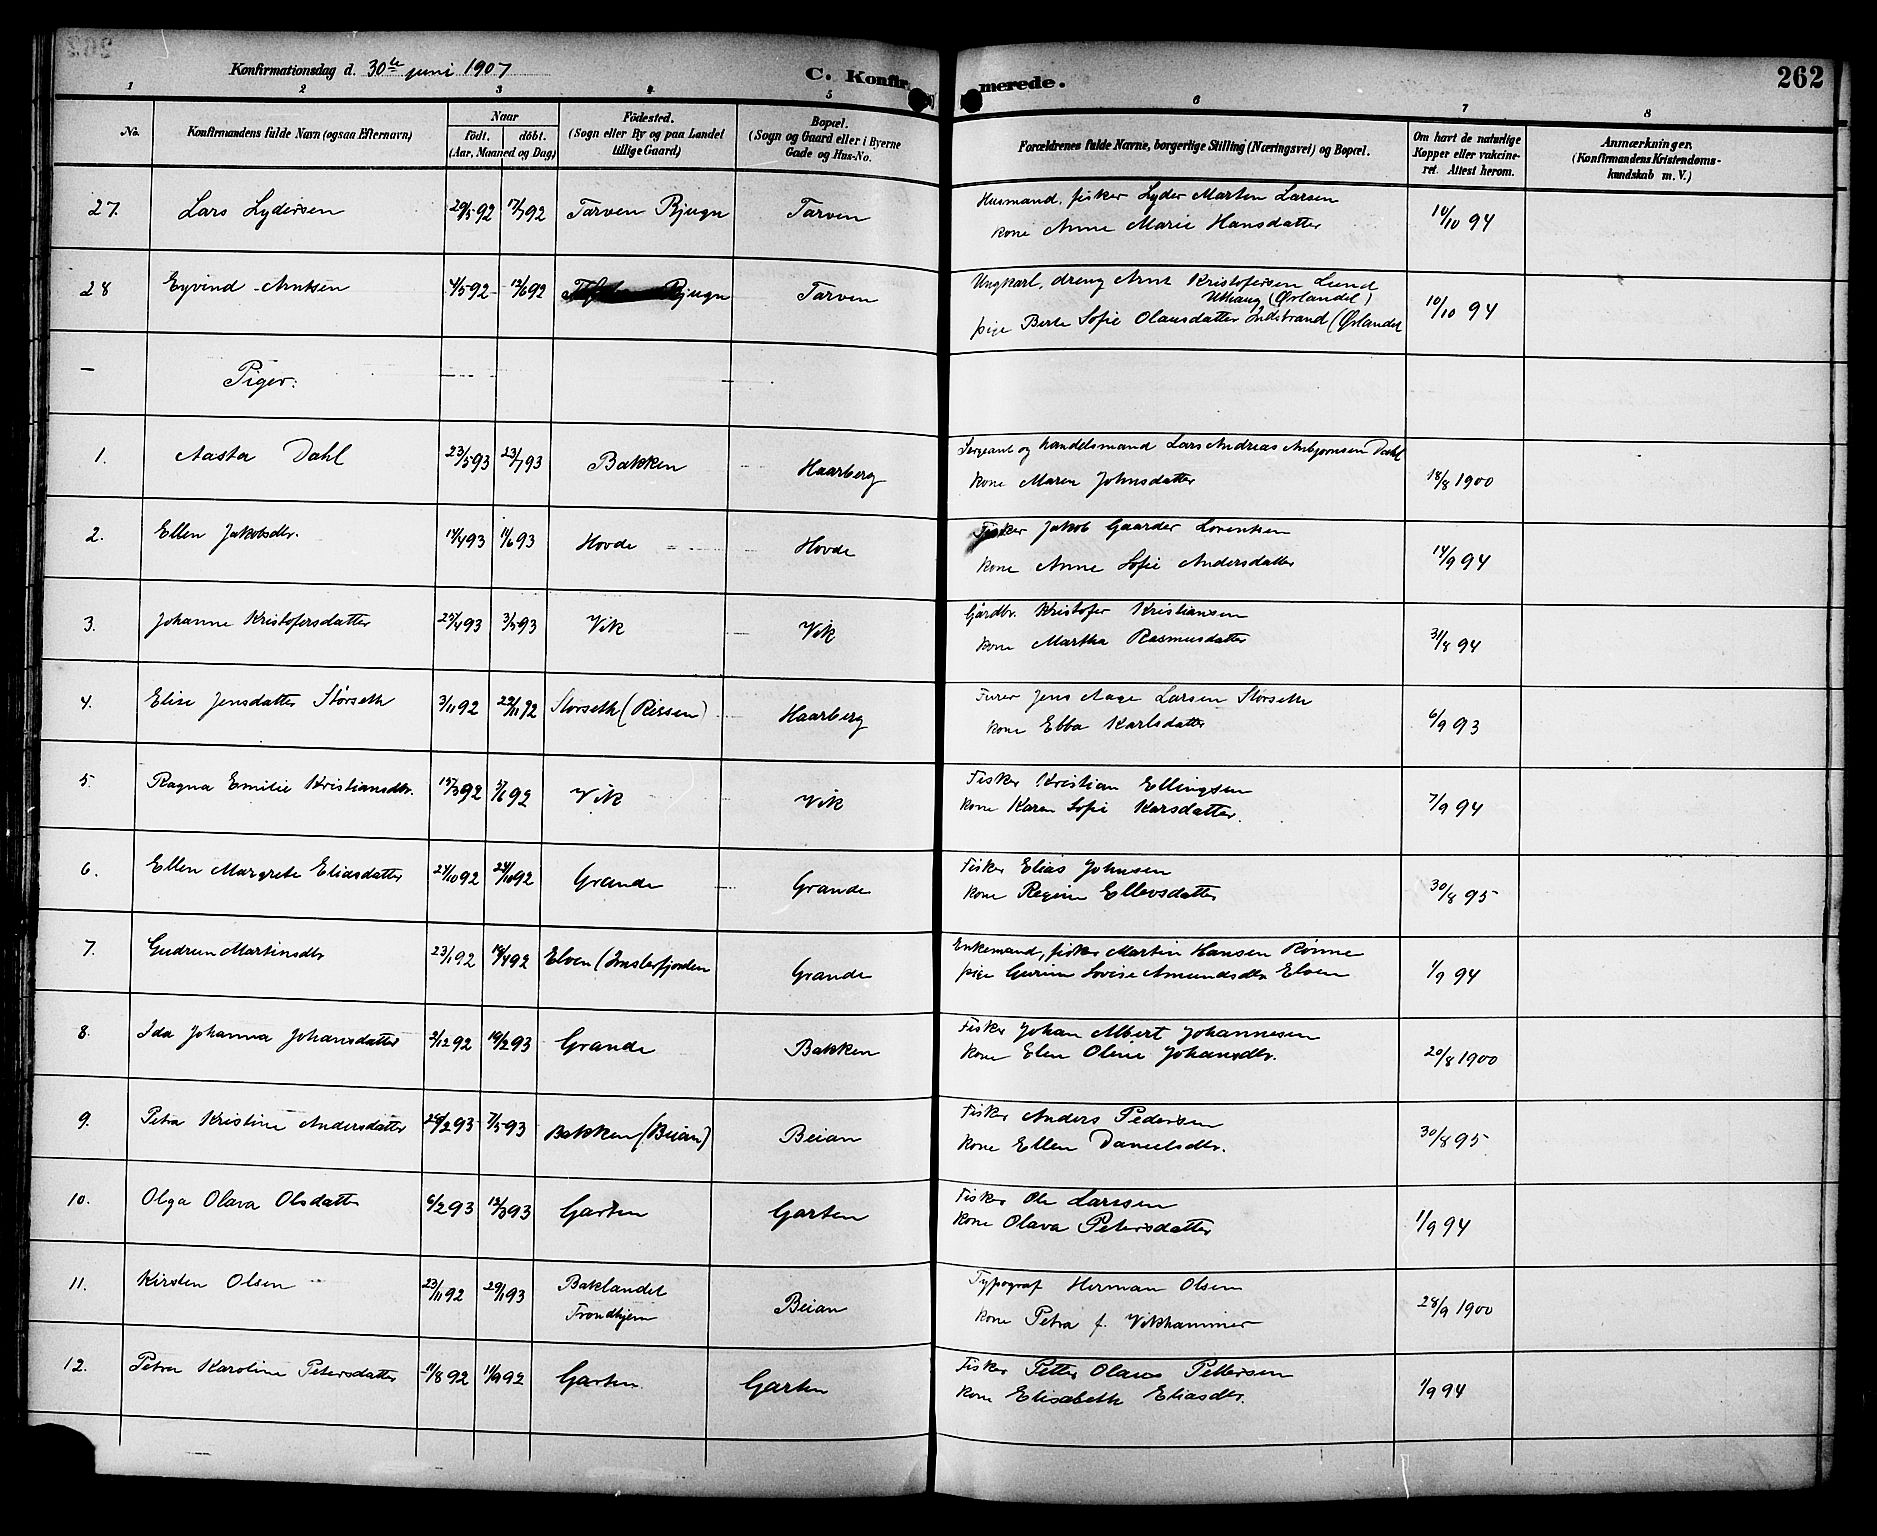 Konfirmationsdag d. 30te juni 1907
C. Konfirmerede.
262
1 2 3 4 5 6 7 8
No.
Konfirmandens fulde Navn (ogsaa Efternavn)
Naar
födt. döbt.
(Aar, Maaned og Dag)
Födested.
(Sogn eller By og paa Landet
tillige Gaard)
Bopæl.
(Sogn og Gaard eller i Byerne
Gade og Hus-No.
Forældrenes fulde Navne, borgerlige Stilling (Næringsvei) og Bopæl.
Om havt de naturlige
Kopper eller vakcine-
ret. Attest herom.
Anmærkninger,
(Konfirmandens Kristendoms-
kundskab m. V.)
27. Lars Lydersen 29/5 92 17/7 92 Tarven Bjugn Tarven
Husmand, fisker Lyder Marten Larsen
kone Anne Marie Hansdatter
10/10 94
28 Eyvind Arntsen 4/5 92 12/6 92 Bjugn Tarven
Ungkarl, dreng Arnt Kristofersen Lund
Uthaug (Ørlandet)
pige Berte Sofie Olausdatter Indstrand (Ørlandet
10/10 94
Piger:
1. Aasta Dahl 23/5 93 23/7 93 Bakken Haarberg
Sergeant og handelsmand Lars Andreas Anbjørnsen Dahl
kone Maren Johnsdatter
18/8 1900
2. Ellen Jakobsdtr. 17/4 93 11/6 93 Hovde Hovde
Fisker Jakob Gaarder Lorentsen
kone Anne Sofie Andersdatter
14/9 94
3. Johanne Kristofersdatter 25/4 93 3/5 93 Vik Vik
Gårdbr. Kristofer Kristiansen
kone Martha Rasmusdatter
31/8 94
4. Elise Jensdatter Størseth 3/11 92 22/11 92 Storseth (Rissen) Haarberg
Furer Jens Aage Larsen Storseth
kone Ebba Karlsdatter
6/9 93
5. Ragna Emilie Kristiansdtr. 15/3 92 5/6 92 Vik Vik
Fisker Kristian Ellingsen
kone Karen Sofie Karsdatter.
7/9 94
6. Ellen Margrete Eliasdatter 24/10 92 24/10 92 Grande Grande
Fisker Elias Johnsen
kone Regine Ellevsdatter
30/8 95
7. Gudrun Martinsdtr 23/1 92 18/4 92 Elven (Imslerfjorden Grande
Enkemand, fisker Martin Hansen Rønne
pige Gurine Lovise Amundsdtr Elven
1/9 94
8. Ida Johanna Johansdatter 2/12 92 19/2 93 Grande Bakken
Fisker Johan Albert Johannesen
kone Elen Oline Johansdtr.
20/8 1900
9. Petra Kristine Andersdatter 24/2 93 7/5 93 Bakken (Beian) Beian
Fisker Anders Pedersen
kone Ellen Danielsdtr.
30/8 95
10. Olga Olava Olsdatter 6/2 93 12/3 93 Garten Garten
Fisker Ole Larssen
kone Olava Petersdatter
1/9 94
11. Kirsten Olsen 23/11 92 29/1 93 Baklandet
Trondhjem Beian
Typograf Herman Olsen
kone Petra f. Vikhammer
28/9 1900
12. Petra Karoline Petersdatter 11/8 92 11/9 92 Garten Garten
Fisker Petter Olaus Pettersen
kone Elisabeth Eliasdtr.
1/9 94